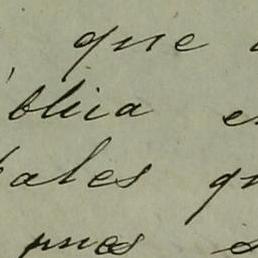 que
blica e
ales qu
pues